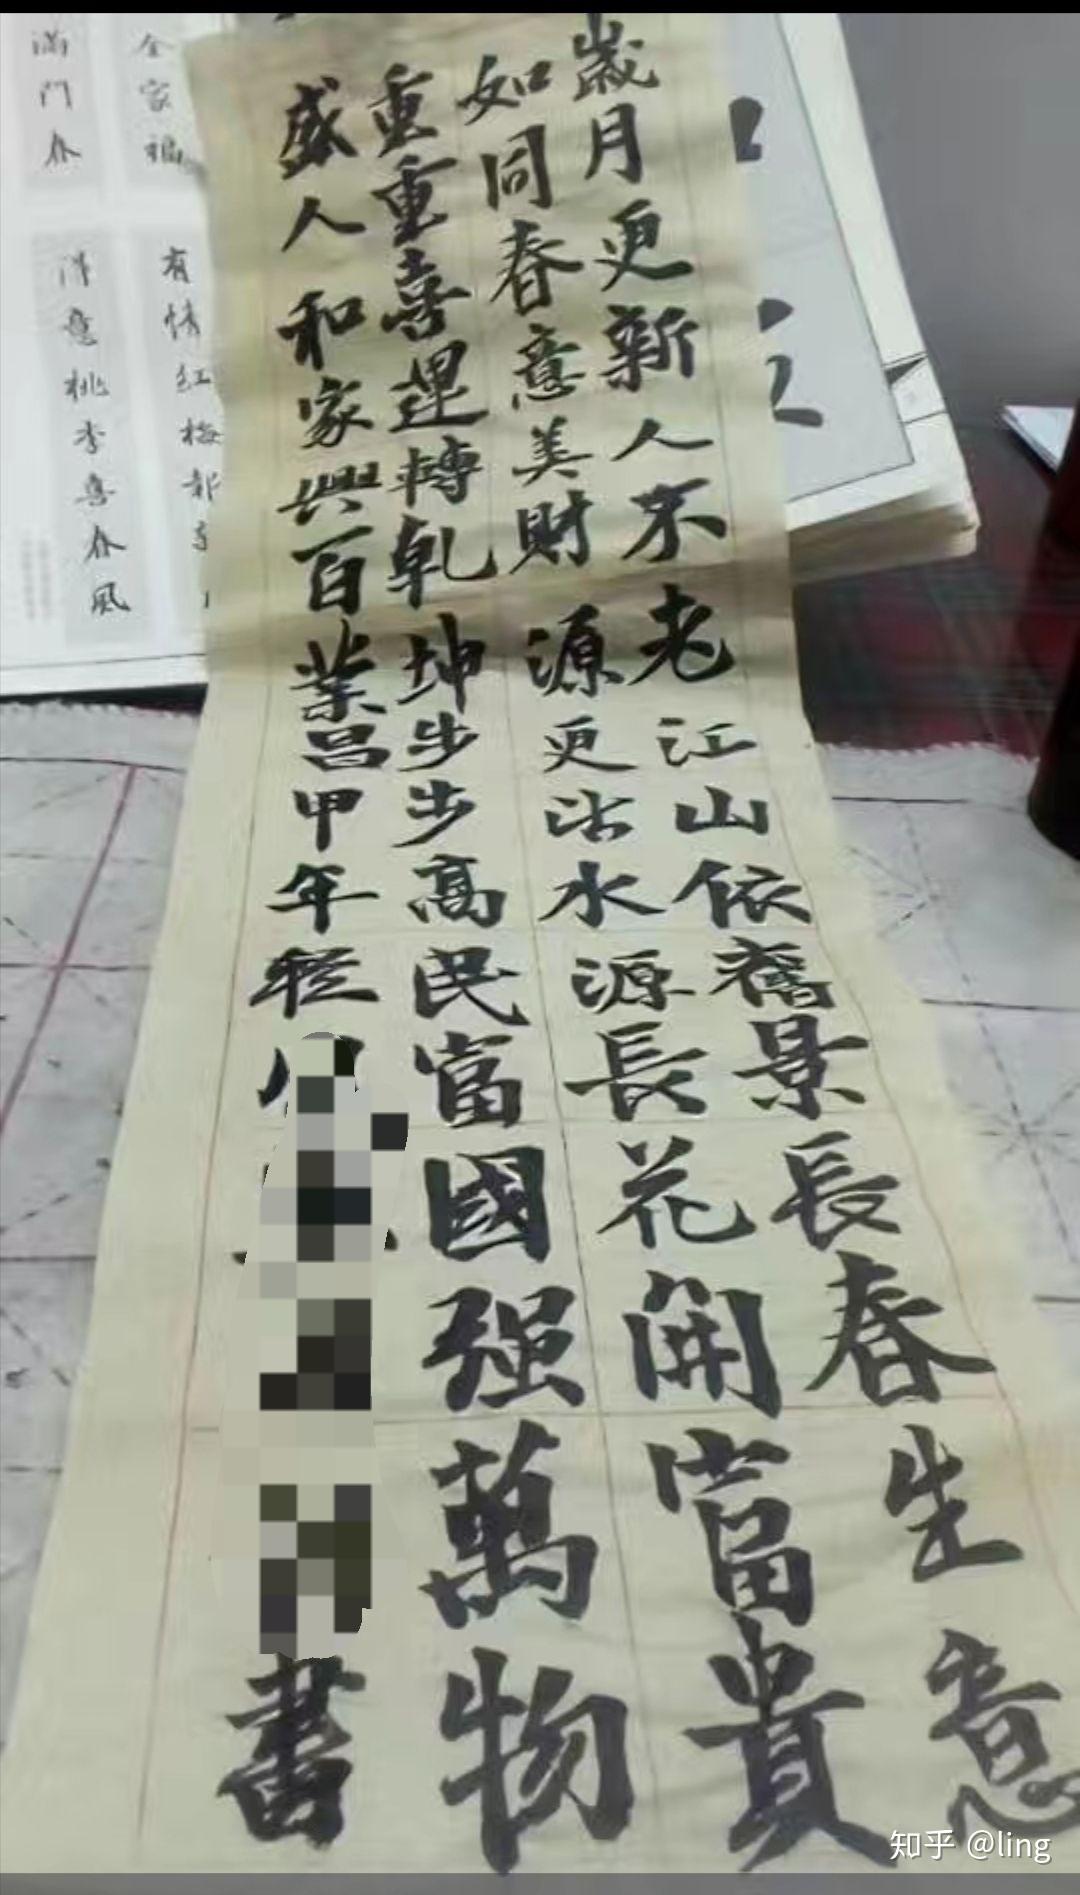 歲月更新人不老江山依舊景長春生意
如同春意美財源更沾水源長花開富貴
重重喜運轉乾坤步步高民富國强萬物
盛人和家興百業昌甲年
書
全家福
滿門春
有情紅梅報
意桃李喜春風
知乎 @ling